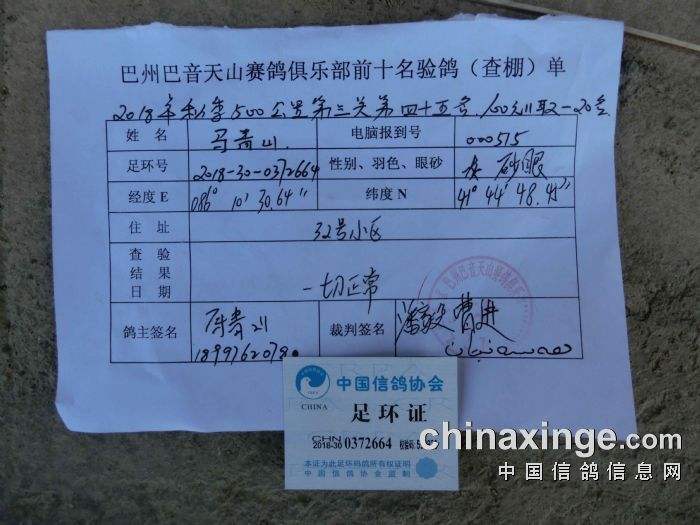 巴州巴音天山赛鸽俱乐部前十名验鸽（查棚）单
2018年秋季500公里第三关第四十五名.
姓 名 马青山. 电脑报到号 000515
足环号 2018-30-0372664 性别、羽色、眼砂 灰 砂眼
经度E 086° 10′ 30.64″ 纬度N 41° 44′ 48.45″
住 址 32号小区
查 验
结 果 一切正常
日 期
鸽主签名 裁判签名 曹进
中国信鸽协会
CHINA
足环证
CHN
2018-30 0372664
本证为此足环码鸽所有权证明
中国信鸽协会监制
chinaxinge.com
中国信鸽信息网